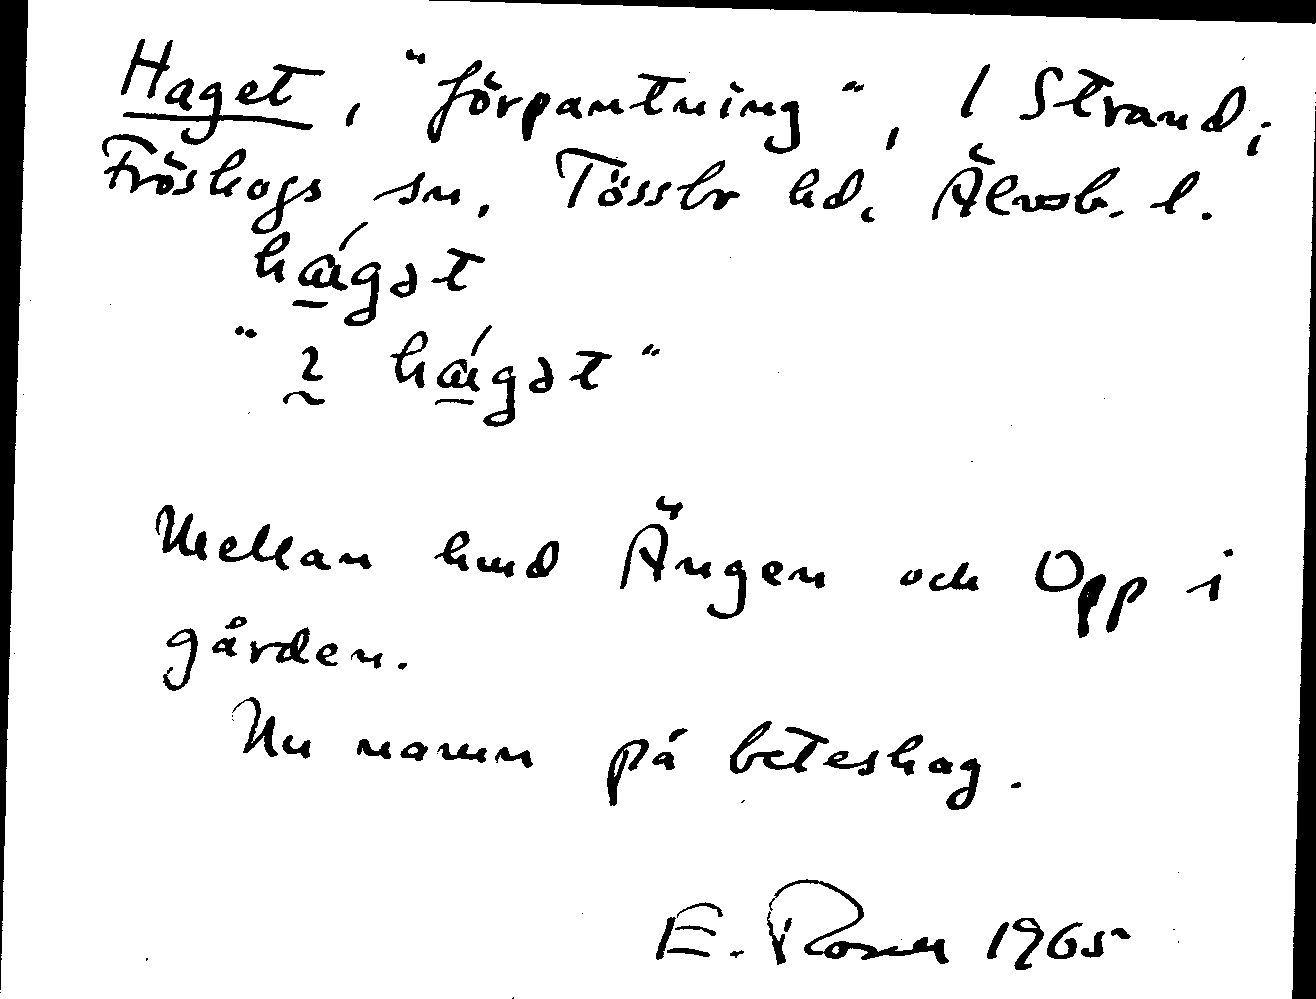 Haget, "förpantning", / Strand,
Fröskogs sn, Tössbo hd, Älvsb. l.
hágət
" ꝛ hágət "
Mellan hmd Ängen och Opp i
gården.
Nu namn på beteshag.
E. Rosen 1965